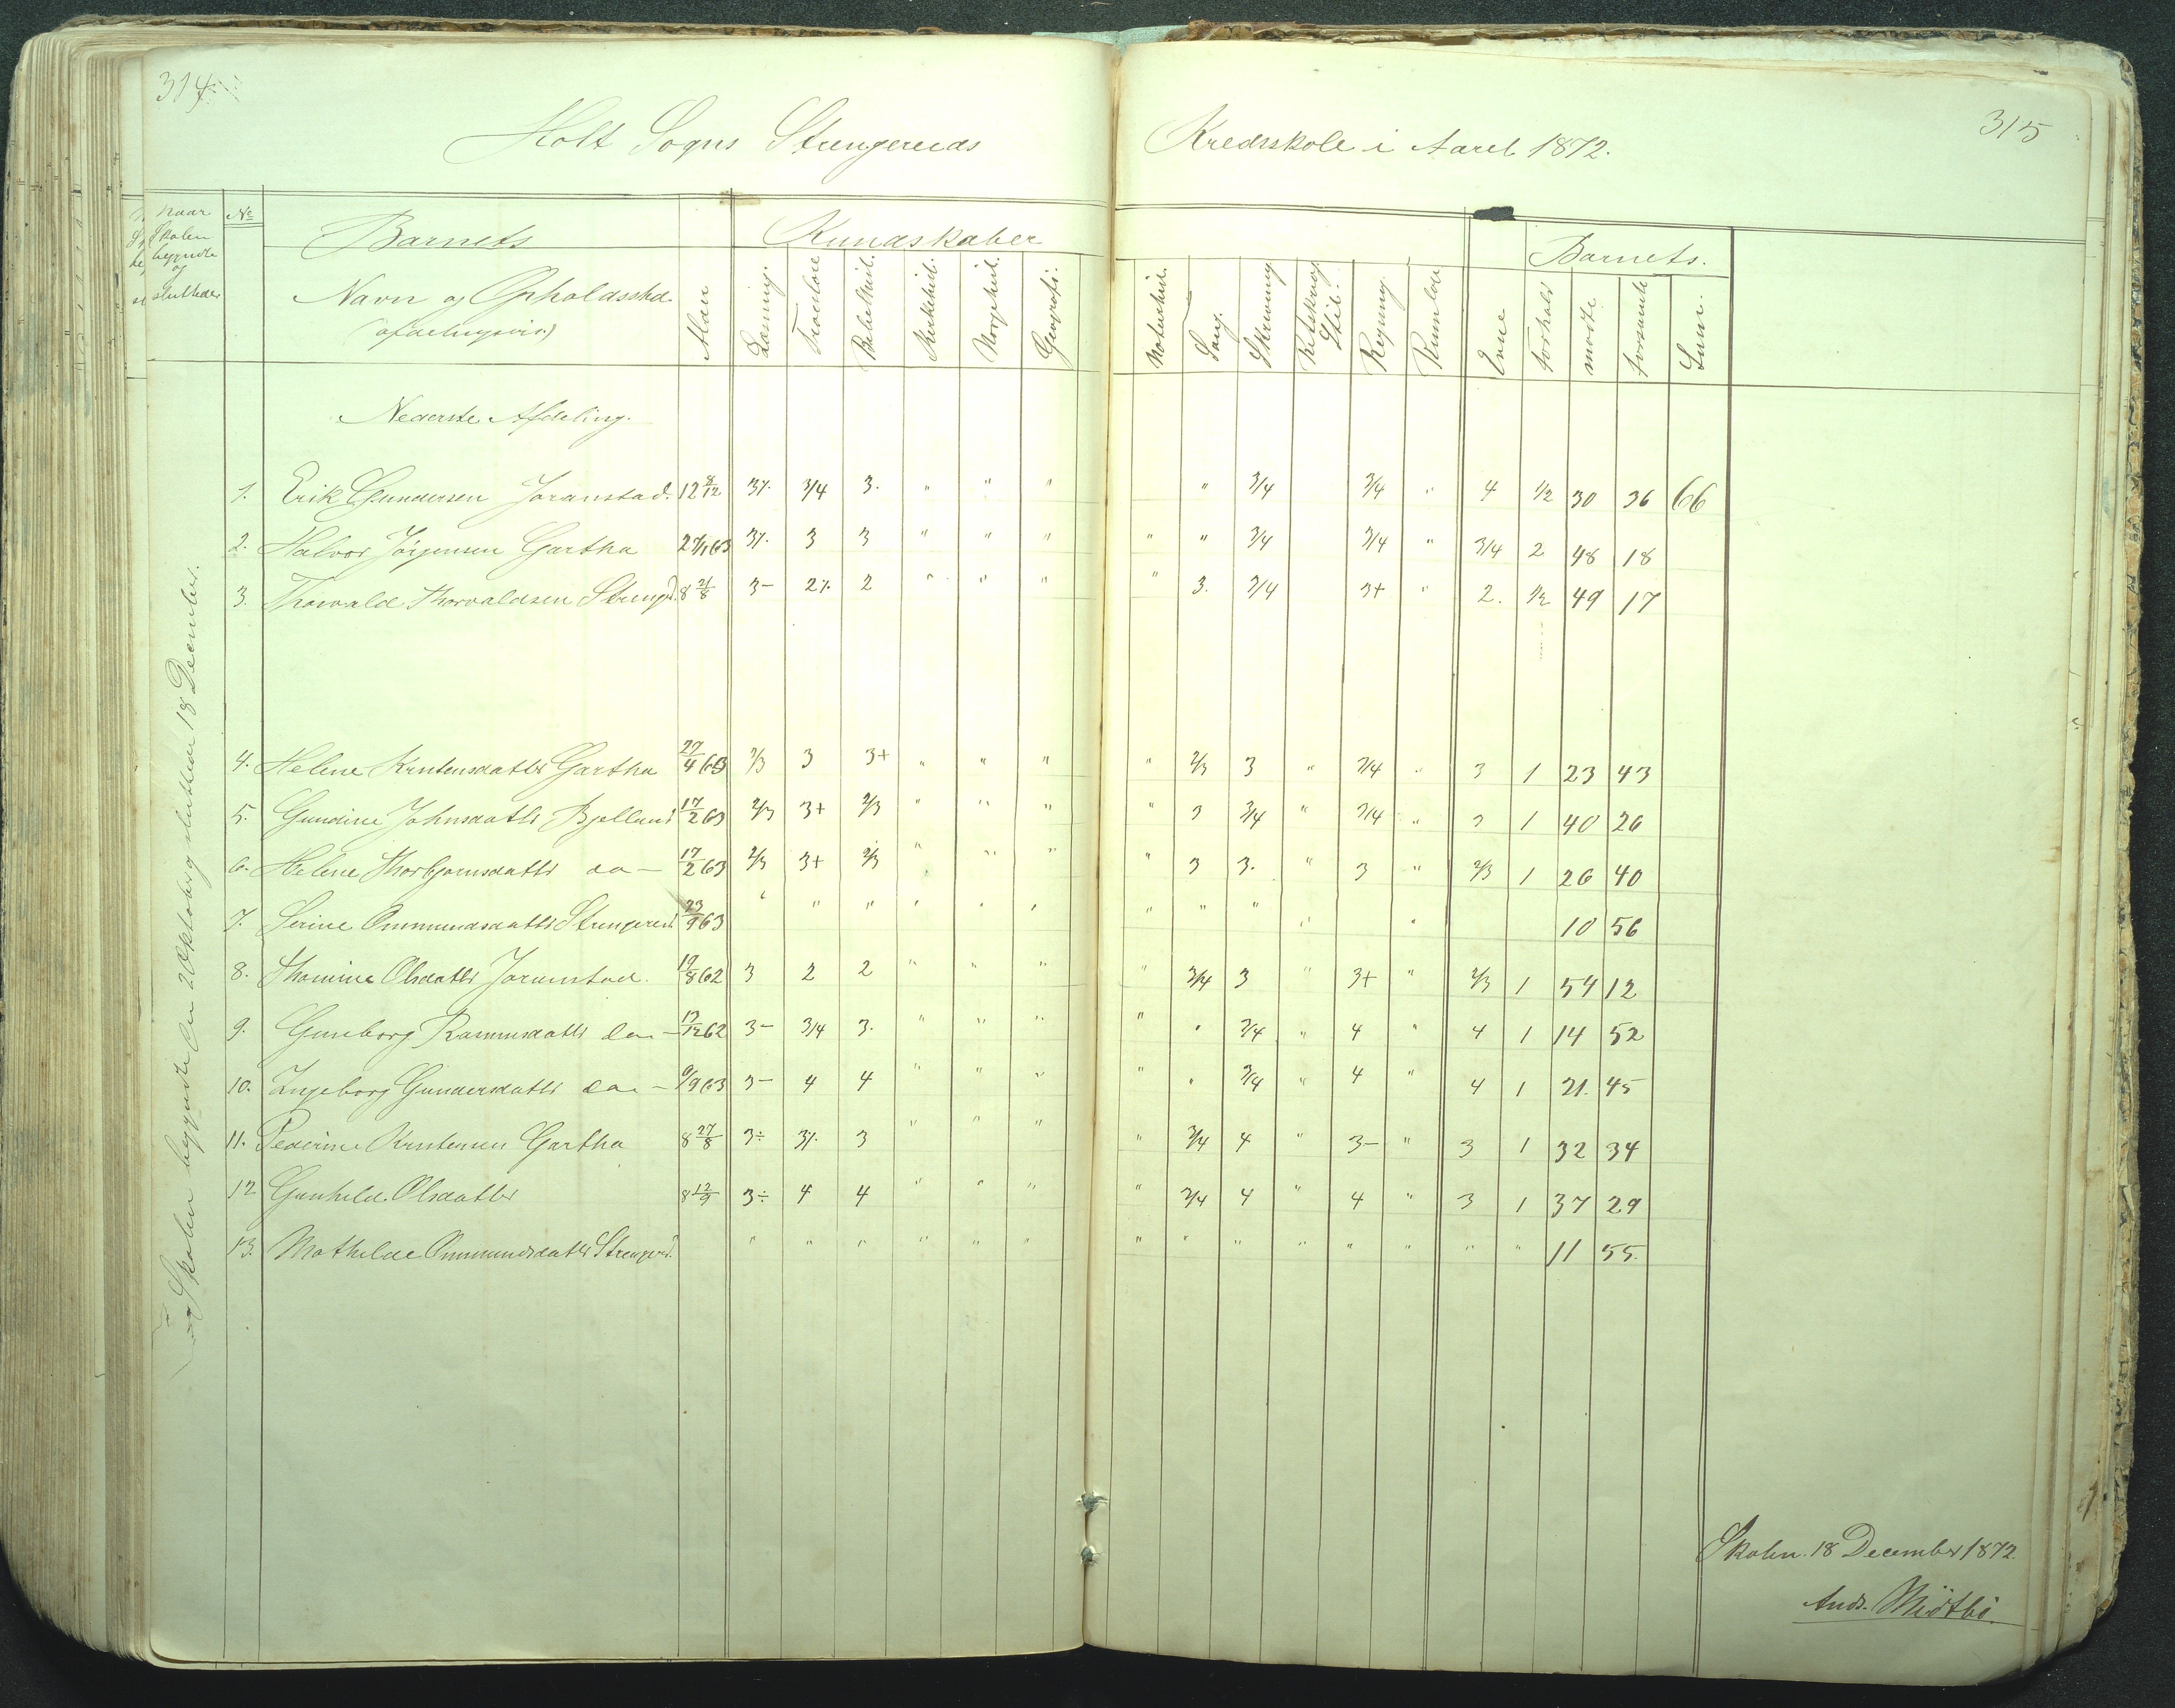 314
315
Holt Sogns Strengereids Kredsskole i Aaret 1872.
Naar Skolen begyndte og sluttedes
No
Barnets
Navn og Opholdssted.
(afdelingsvis)
Alder
Kundskaber
Læsning.
Troeslære
Bibelhist.
Kirkehist.
Norgehist.
Geografi.
Naturhist.
Sang.
Skrivning
Retskrivng Stil.
Regning
Rumlære
Evne
Barnets.
Forhold
mødte
forsømte
Sum.
Skolen begyndte den 2 Oktober og sluttedes 18 December.
Nederste Afdeling.
1. Erik Gundersen Joranstad. 12 8/12 3⁒ 3/4 3. " " " " 3/4 3/4 " 4 1/2 30 36 66
2. Halvor Jörgensen Gartha 27/1 63 3⁒ 3 3 " " " " " 3/4 3/4 " 3/4 2 48 18
3. Thorvald Thorvaldsen Strengrd. 8 21/8 3- 2⁒ 2 " " " " 3. 3/4 3+ " 2. 1/2 49 17
4. Helene Kristensdatter Gartha 27/4 63 2/3 3 3+ " " " " 2/3 3 " 3/4 " 3 1 23 43
5. Gundine Johnsdatter Bjelland 17/2 63 2/3 3+ 2/3 " " " " 3 3/4 " 3/4 " 3 1 40 26
6. Helene Thorbjørnsdatter do - 17/2 63 2/3 3+ 2/3 " " " " 3 3. " 3 " 2/3 1 26 40
7. Serine Ommundsdatter Strengereid 23/9 63 " " " " " " " " " " " 10 56
8. Thomine Olsdatter Joranstad. 19/8 62 3 2 2 " " " " 3/4 3 " 3+ " 2/3 1 54 12
9. Gunborg Rasmusdatter do - 13/12 62 3- 3/4 3. " " " " " 3/4 " 4 " 4 1 14 52
10. Ingeborg Gundersdatter do - 9/9 63 3- 4 4 " " " " " 3/4 " 4 " 4 1 21. 45
11. Pederine Kristensen Gartha 8 27/8 3÷ 3⁒ 3 " " " " 3/4 4 " 3- " 3 1 32 34
12 Gunhild Olsdatter 8 12/9 3÷ 4 4 " " " " 3/4 4 " 4 " 3 1 37 29
13. Mathilde Ommundsdatter Strengerd. " " " " " " " " " " " " " " 11 55.
Skolen. 18 December 1872.
Ands. Mjötbö.